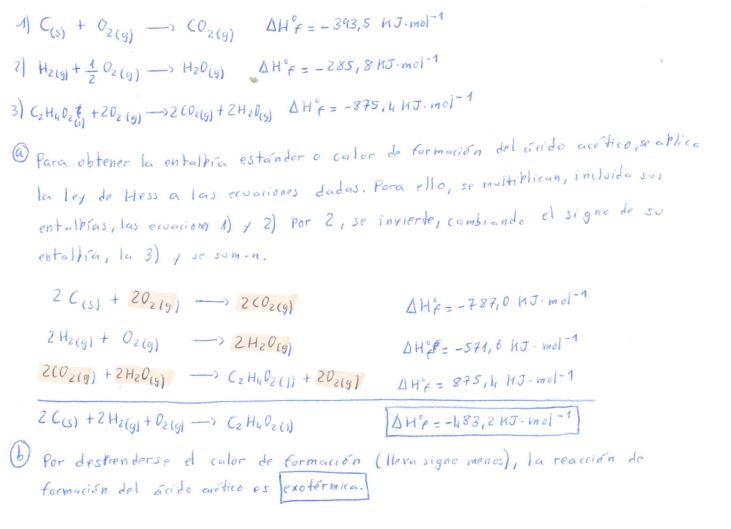 1) C(s) + O2(g) → CO2(g) ΔH°f = -393,5 KJ·mol-1
2) H2(g) + 1/2 O2(g) → H2O(g) ΔH°f = -285,8 KJ·mol-1
3) C2H4O2(l) + 2O2(g) → 2CO2(g) + 2H2O(g) ΔH°f = -875,4 KJ·mol-1
a) Para obtener la entalpía estándar o calor de formación del ácido acético, se aplica
la ley de Hess a las ecuaciones dadas. Para ello, se multiplican, incluida sus
entalpías, las ecuaciones 1) y 2) por 2, se invierte, cambiando el signo de su
entalpía, la 3) y se suman.
2 C(s) + 2O2(g) → 2CO2(g) ΔH°f = -787,0 KJ·mol-1
2 H2(g) + O2(g) → 2H2O(g) ΔH°f = -571,6 KJ·mol-1
2CO2(g) + 2H2O(g) → C2H4O2(l) + 2O2(g) ΔH°f = 875,4 KJ·mol-1
2 C(s) + 2H2(g) + O2(g) → C2H4O2(l) ΔH°f = -483,2 KJ·mol-1
b) Por desprenderse el calor de formación (lleva signo menos), la reacción de
formación del ácido acético es exotérmica.